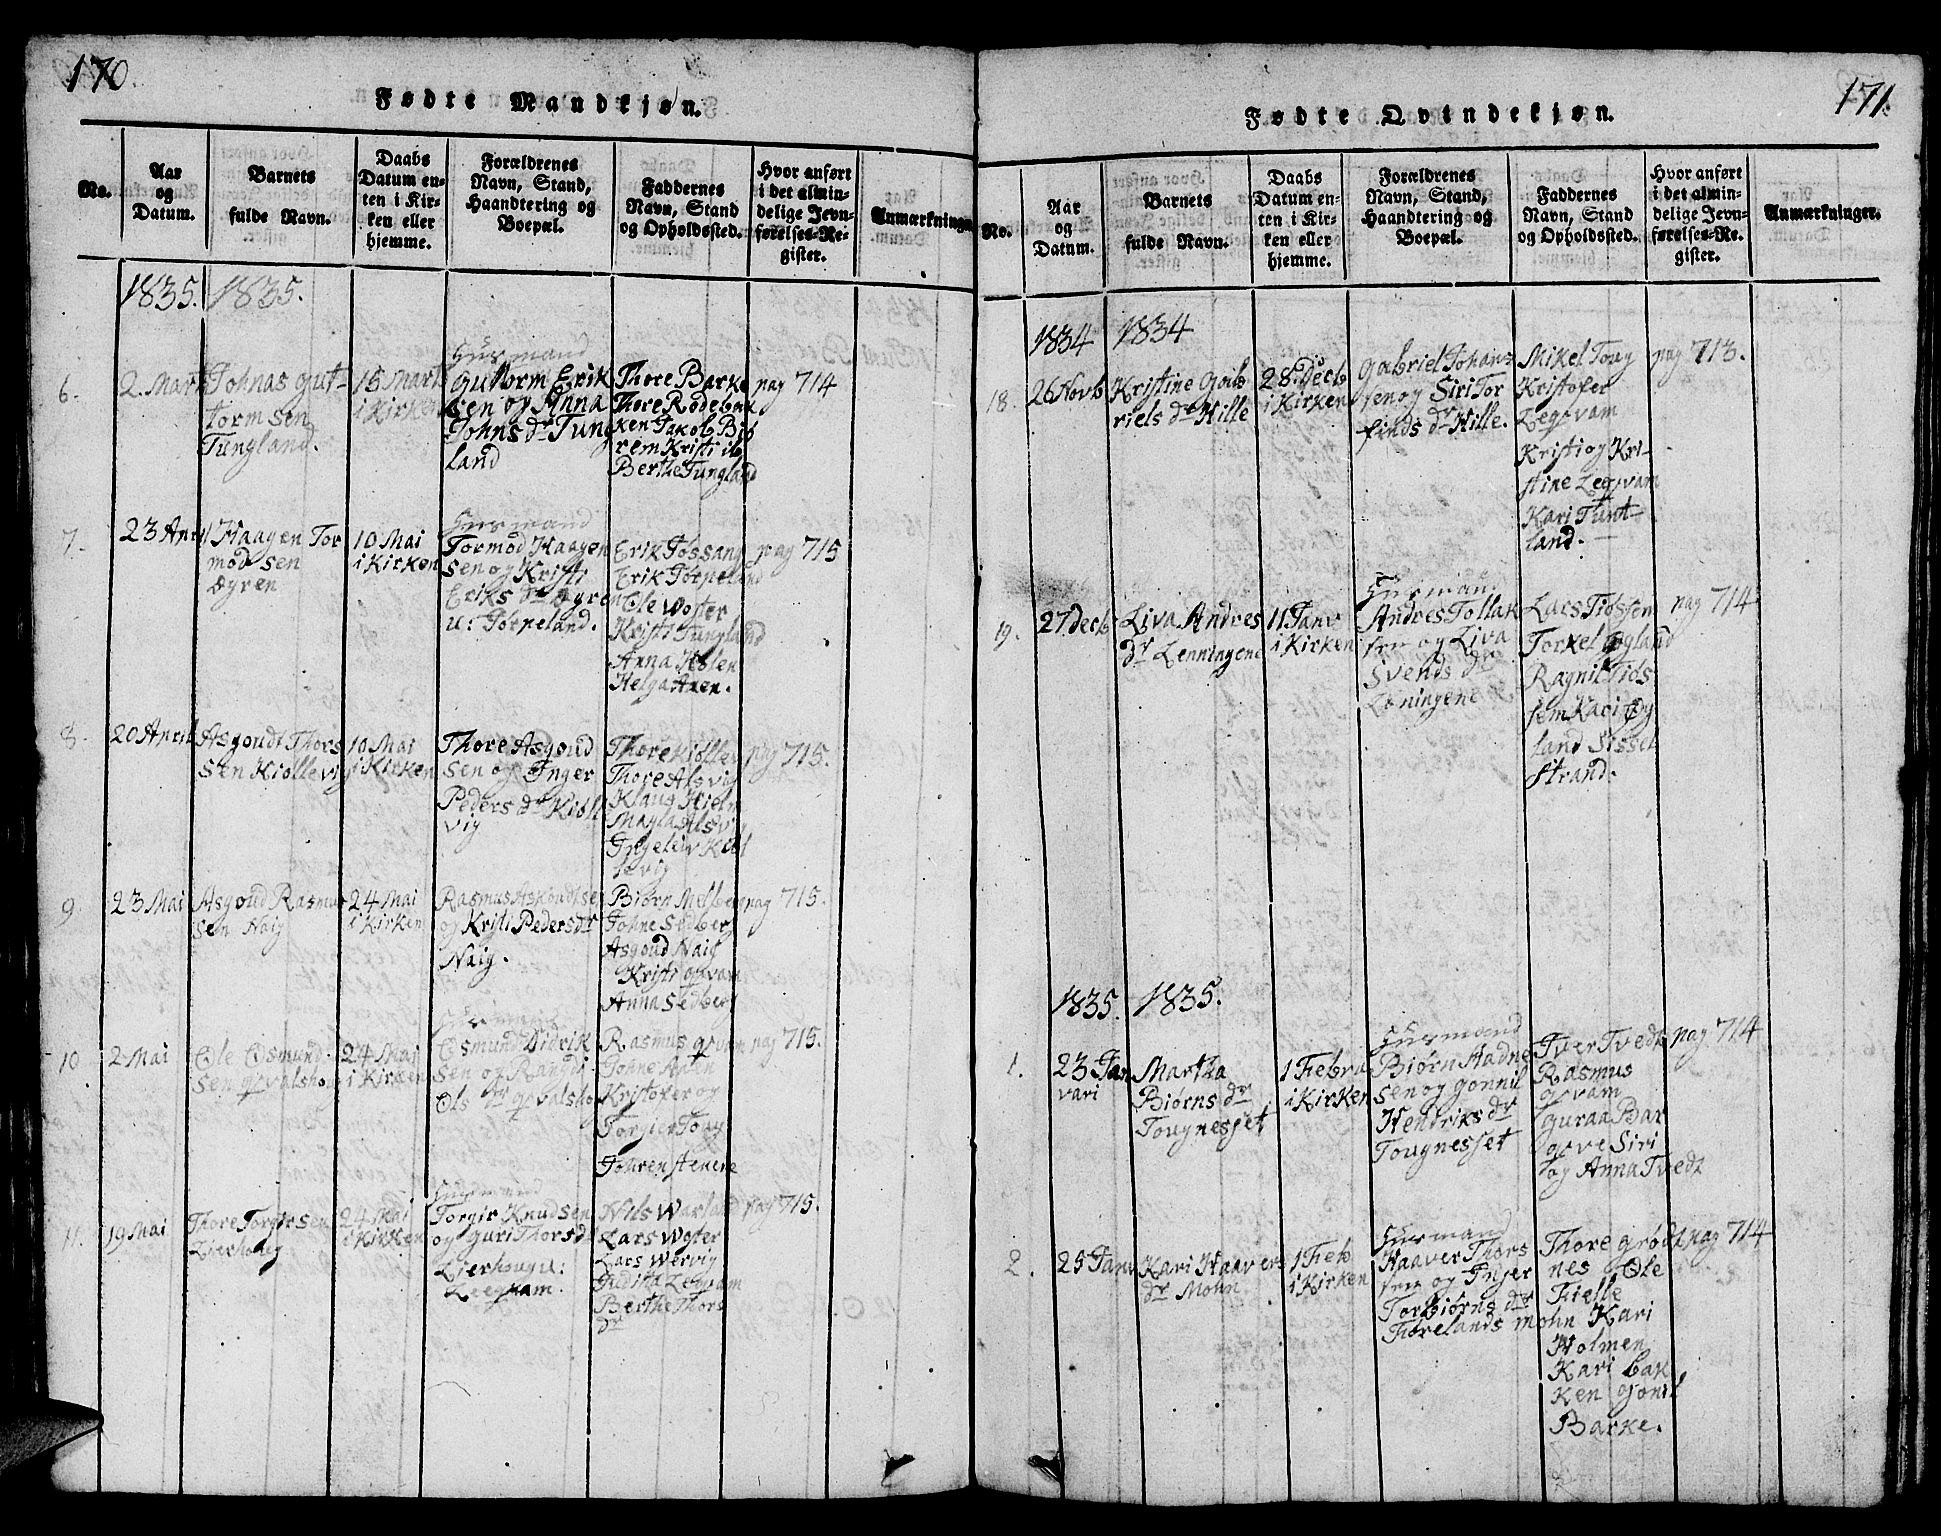 170.
Fødte Mandkjøn.
No.
Aar
og
Datum.
Barnets
fulde Navn.
Daabs
Datum en-
ten i Kir-
ken eller
hjemme.
Forældrenes
Navn, Stand,
Haandtering og
Boepæl.
Faddernes
Navn, Stand
og Opholdssted.
Hvor anført
i det almin-
delige Jevn-
førelses-Re-
gister.
Anmærkninger
1835.
1835.
6.
2. Mart
Johnas Gut-
torm sen
Tungland.
15 Mart
i Kirken
Husmand
Guttorm Erik
sen og Anna
Johns dr Tung
land
Thore Barke
Thore Rødebak
ken Jakob Bis
rem Kristi ib
Berthe Tungland
pag 714
7.
23 April
Haagen Tor
mod sen
Øgren
10 Mai
i Kirken
Husmand
Tormod Haagen
sen og Kristi
Eriks dr Øgren
u: Tørpeland.
Erik Tøssang
Erik Tørpeland
Ole Woster
Kristi Tungland
Anna Holen
Helga Anen.
pag 715
8.
20 April
Asgoudt Thors
sen Kiøllevig
10 Mai
i Kirken
Thore Asgoud
sen og Inger
Peders dr Kiøll
vig
Thore Kiøllev
Thore Alsvig
Klaus Hielm
Magla Alsv
Ingelev Kiøl
levig
pag 715.
9.
23 Mai
Asgoud Rasmus
sen Haig
24 Mai
i Kirken
Rasmus Askoudtsen
og Kristi Peders dr
Haig.
Biørn Melberg
Johne Sedberg
Asgoud Haig
Kristi qvam
Anna Sedberg
pag 715.
10.
2 Mai
Ole Osmund
sen qvalshoug
24 Mai
i Kirken
Husmand
Osmund Didrik
sen og Randi
Ols dr qvalshou
Rasmus qvam
Johne Anen
Kristofer og
Torgier Toug
Johren stenene
pag 715.
11.
19 Mai
Thore Torgirsen
Lierhoug
24 Mai
i Kirken
Husmand
Torgir Knudsen
og Guri Thors dr
Lierhoug u:
Legqvam.
Nils Warland
Lars Woster
Lars Wervig
Judita Legqvam
Berthe Thors
dr
pag 715.
171.
Fødte Qvindekjøn.
No.
Aar
og
Datum.
Barnets
fulde Navn.
Daabs
Datum en-
ten i Kir-
ken eller
hjemme.
Forældrenes
Navn, Stand,
Haandtering og
Boepæl.
Faddernes
Navn, Stand
og Opholdssted.
Hvor anført
i det almin-
delige Jevn-
førelses-Re-
gister.
Anmærkninger.
1834
1834
18.
26 Novb
Kristine Gab
riels dr Hille
28. Decb
i Kirken
Gabriel Johans
sen og Siri Tor
finds dr Hille.
Mikel Toug
Kristofer
Legqvam
Kristi og Kri-
stine Legqvam
Kari Tunt-
land.
pag 713.
19.
27 Decb
Liva Andres
dr Lenningene
11 Janv
i Kirken
Husmand
Andres Tollak
sen og Liva
Svends dr
Løningene
Lars Tiøssen
Torkel Øgland
Ragnil Tiøs
sem Kari Øg
land Sissel
strand.
pag 714
1835.
1835.
1.
23 Jan
vari
Martha
Biørns dr
Tougnesset
1 Febru
i Kirken
Husmand
Biørn Aadne
sen og Gonnil
Hendriks dr
Tougnesset
Iver Tvedt
Rasmus
qvam
Guraa Bar
qve Siri
og Anna Tvedt
pag 714
2.
25 Janv
Kari Haavers
dr Mohn.
1 Feb
i Kirken
Husmand
Haaver Thors
sen og Inger
Torbiørns dr
Fiørelands mohn
Thore Grødt
nes Ole
Fielle
Kari
Holmen
Kari bak
ken Gonil
Barke.
pag 714